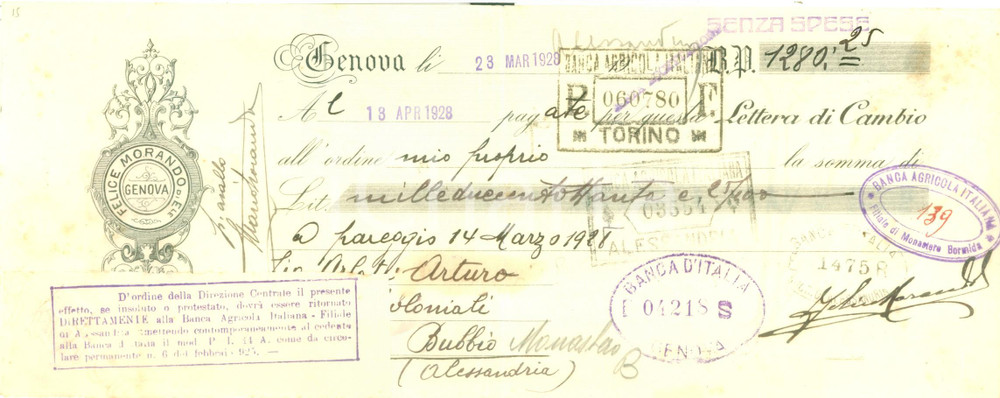 15
SENZA SPESE
Genova li 23 MAR 1928 B.P. 1280,25
Alessandria
BANCA AGRICOLA ITALIANA
P 060780 F
TORINO
Al 18 APR 1928 pagate per questa Lettera di Cambio
all'ordine mio proprio la somma di
Lit. milleduecentottanta e 25/100
a pareggio 14 Marzo 1928
Arturo
oloniali
Bubbio Monastero
B
(Alessandria)
FELICE MORANDO
GENOVA
P. avallo
BANCA AGRICOLA ITALIANA
139
Filiale di Monastero Bormida
14758
ALESS
BANCA D'ITALIA
04218 S
GENOVA
D'ordine della Direzione Centrale il presente
effetto, se insoluto o protestato, dovrà essere ritornato
DIRETTAMENTE alla Banca Agricola Italiana - Filiale
di Alessandria rimettendo contemporaneamente al cedente
alla Banca d'Italia il mod. P. I. 14 A. come da circo-
lare permanente n. 6 del febbraio 925.